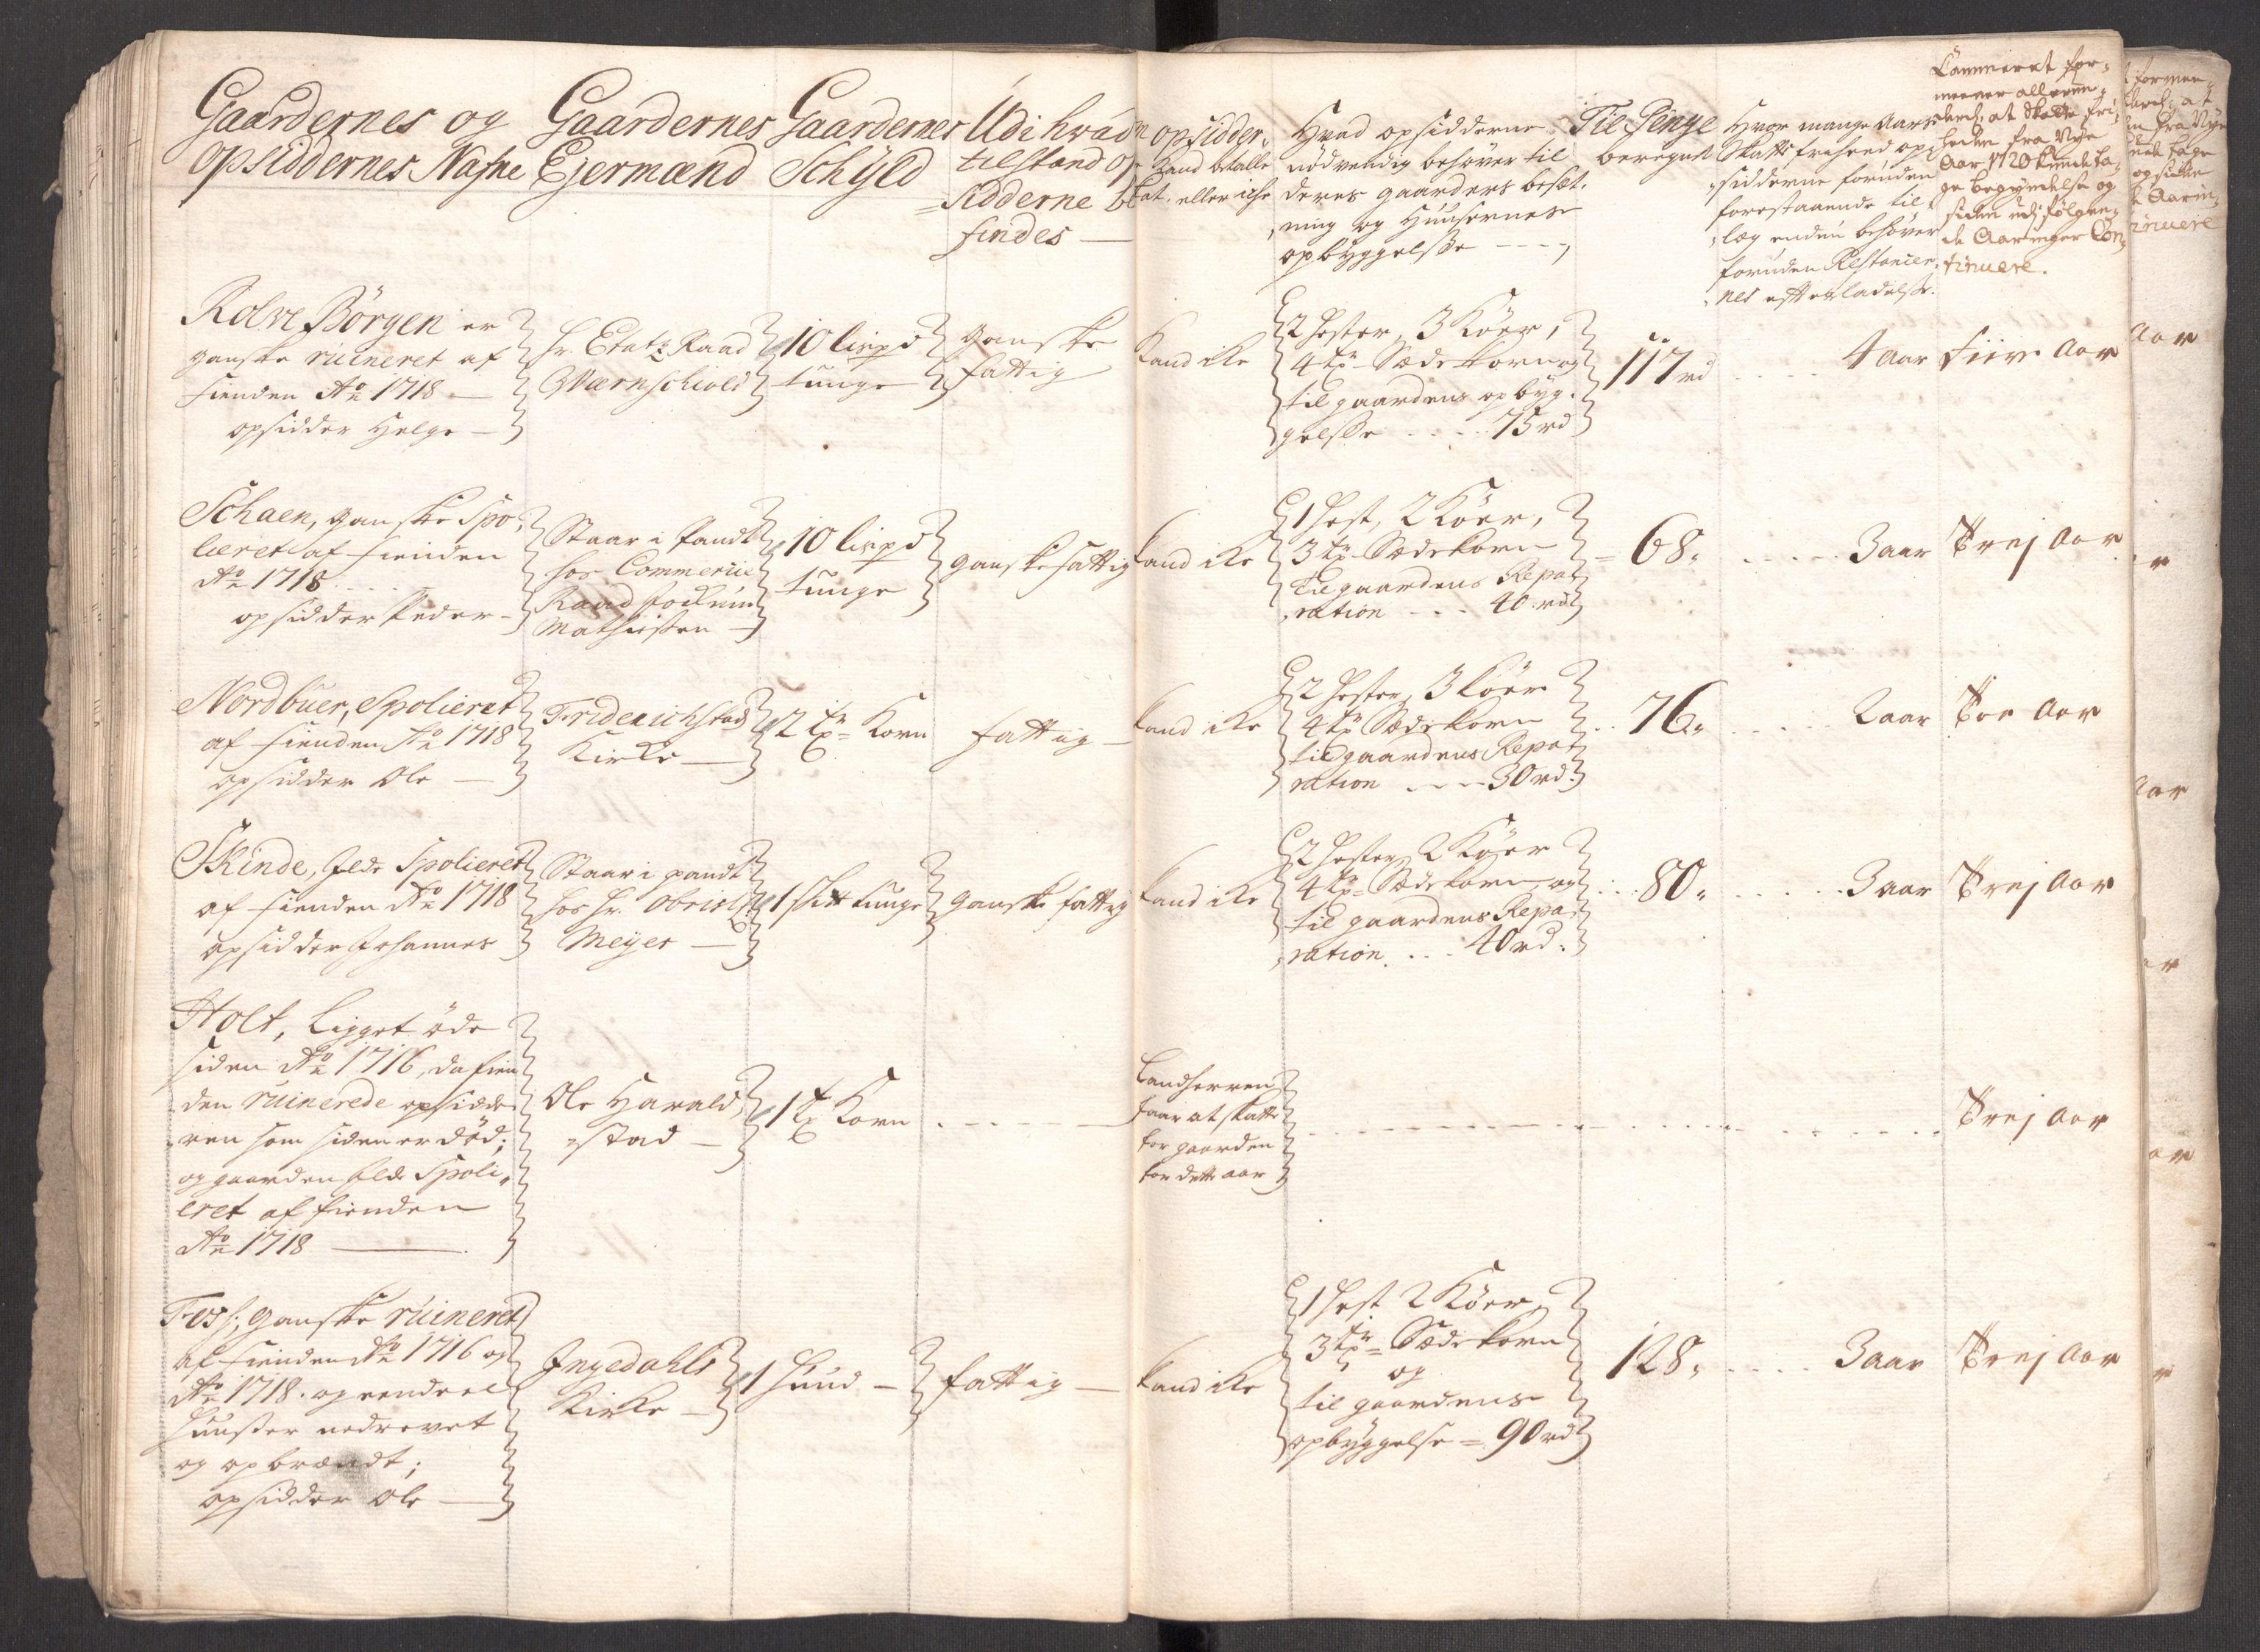 Gaardernes og
Opsiddernes Nafne
Gaardernes
Ejermænd
Gaardernes
Schÿld
Udi hvad
tilstand Op
=sidderne be
findes —
opsidder,
Kand betalle
eller icke
Hvad opsidderne
nødvendig behøver til
deres gaarders besæt,
,ning og Huusernes
opbyggelsse ----,
Til Penge
beregnet
Hvor mange Aars
Skatte frihed op,
,sidderne foruden
forestaaende til,
,læg endnu behøver
foruden Restancer,
,nes efterladelse.
Cammeret for,
meener allerun,
at Skatte fri,
heden fra Nye
Aar 1720 kunde ta,
ge begyndelse og
siden udj følgen,
de Aaringer Con,
tinuere.
Rolve Børgen er
ganske ruineret af
fienden Ao 1718 —
opsidder Helge —
hr. Etatz Raad
Værnschiold
10 lispd
tunge
ganske
fattig
Kand icke
2 hester, 3 Køer,
4 tr Sædekorn og
til gaardens opbyg,
gelsse .... 75 rd
117 rd ....
4 aar
Fiire Aar
Schaen, ganske Spo,
lieret af fienden
Ao 1718 ...
opsidder Peder —
Staar i Pandt
hos Commercie
Raad Jochum
Mathiesen —
10 lispd
tunge
ganske fattig
Kand icke
1 hest, 2 Køer,
3 tr Sædekorn
til gaardens Repa,
,ration ... 40 rd
= 68. ....
3 aar
Trej Aar
Nordbuer, Spolieret
af fienden Ao 1718
opsidder Ole —
Friderichstad
Kirke —
2 tr Korn
fattig —
kand icke
2 hester, 3 køer
4 tr Sædekorn
til gaardens Repa,
ration ---- 30 rd.
.. 76. ....
2 aar
Toe Aar
Skinde, Ilde Spolieret
af fienden Ao 1718
opsidder Johannes
Staar i pandt
hos hr. Obrist
Meyer —
1 skt tunge
ganske fattig
kand icke
2 hester, 2 Køer
4 tr Sædekorn, og
til gaardens Repa,
,ration. ... 40 rd.
... 80. ....
3 aar
Trej Aar
Holt, ligget øde
siden Ao 1716, da fien
den ruinerede opsidde
ren som siden er død;
og gaarden Ilde Spoli,
eret af fienden
Ao 1718 —
Ole Harald,
,stad —
1 tr Korn
Landherren
faar at skatte
for gaarden
for dette aar
Trej Aar
Foss, ganske ruineret
af fienden Ao 1716 og
Ao 1718. og
Huusser nedrevet
og opbrændt;
opsidder Ole —
Ingedahls
Kirke —
1 Huud —
fattig —
kand icke
1 hest 2 Køer,
3 tr Sædekorn
og
til gaardens
opbyggelse = 90 rd
128. ....
3 aar
Trej Aar